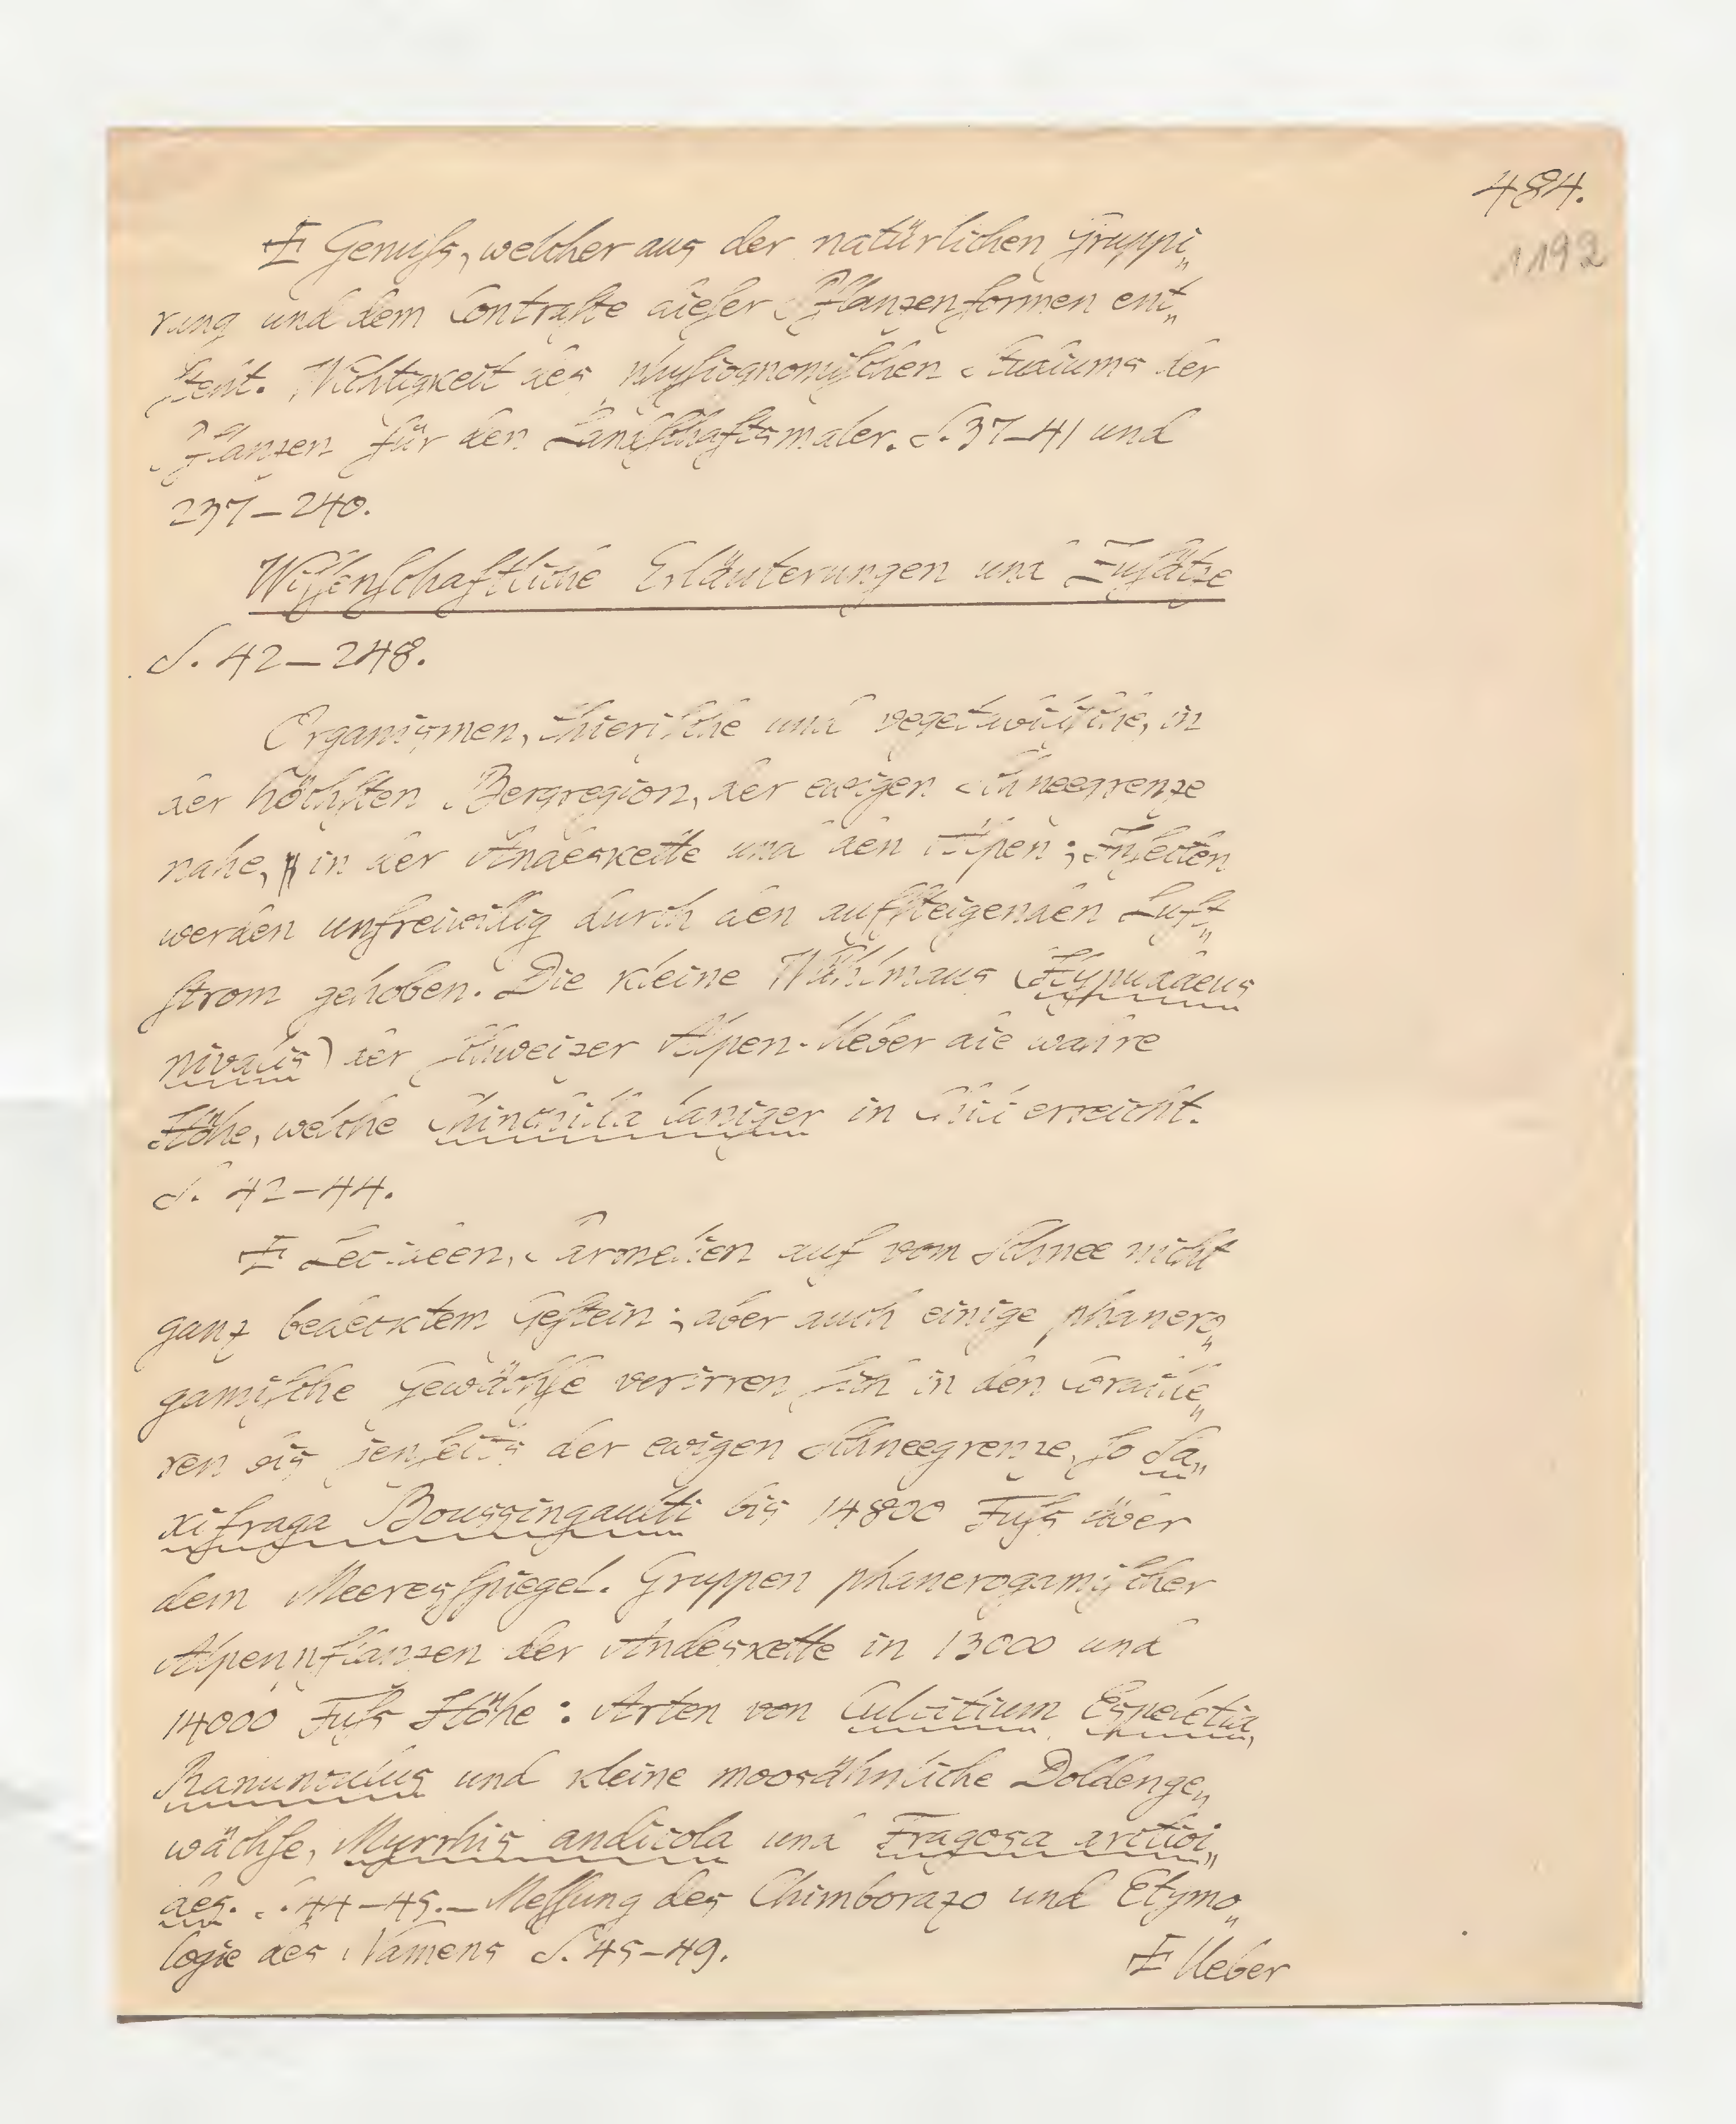 484.
1192
Ɨ Genuſs, welcher aus der natürlichen Gruppi„
rung und dem Contraſte dieſer Pflanzenformen ent„
ſteht. Wichtigkeit des phyſiognomiſchen Studiums der
Pflanzen für den Landſchaftsmaler. S. 37–41 und
237–240.
Wiſſenſchaftliche Erläuterungen und Zuſätze
S. 42–248.
Organismen, thieriſche und vegetabiliſche, in
der höchſten Bergregion, der ewigen Schneegrenze
nahe, in der Andeskette und den Alpen; Inſecten
werden unfreiwillig durch den aufſteigenden Luft„
ſtrom gehoben. Die kleine Wühlmaus (Hypudaeus
nivalis) der ſchweizer Alpen. Ueber die wahre
Höhe, welche Chinchilla laniger in Chili erreicht.
S. 42–44.
Ɨ Lecideen, Parmelien auf vom Schnee nicht
ganz bedecktem Geſtein; aber auch einige phanero„
gamiſche Gewächſe verirren ſich in den Cordille„
ren bis jenſeits der ewigen Schneegrenze, ſo Sa„
xifraga Boussingaulti bis 14800 Fuſs über
dem Meeresſpiegel. Gruppen phanerogamiſcher
Alpenpflanzen der Andeskette in 13000 und
14000 Fuſs Höhe: Arten von Culcitium, Espeletia,
Ranunculus und kleine moosähnliche Doldenge„
wächſe, Myrrhis andicola und Fragosa arctioi„
des. S. 44–45. – Meſſung des Chimborazo und Etymo„
logie des Namens S. 45–49.
Ɨ Ueber